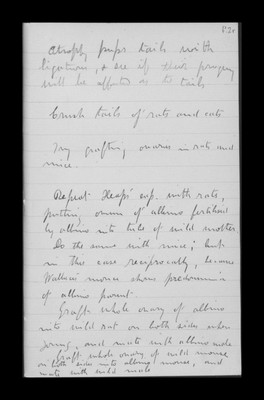 Atrophy pups tails with
ligatures, & see if their progeny
will be affected as to tails
Crush tails of rats and cats
Try grafting ovaries in rats and
mice.
Repeat Heap's exp. with rats,
putting ovum of albino fertilized
by albino into tube of wild mother
Do the same with mice; but
in this case reciprocally, because
Wallace mouse shows predominance
of albino parent.
Graft whole ovary of albino
into wild rat on both sides when
young, and mate with albino male
Graft whole ovary of wild mouse
on both sides into albino mouse, and
mate with wild male